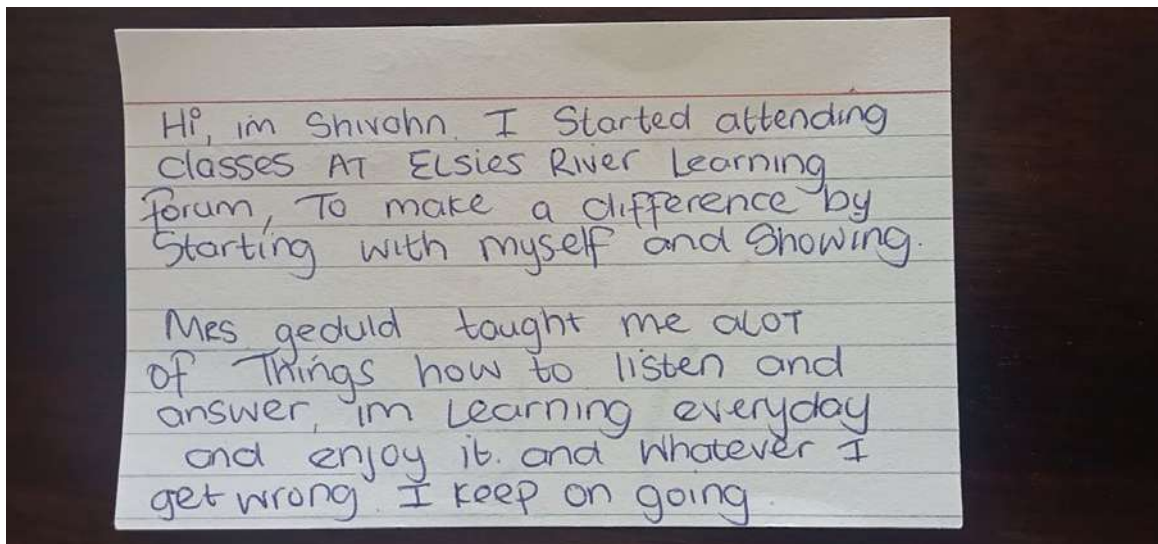 Hi, im Shivohn. I Started attending
classes AT ELsies River Learning
forum, To make a difference by
Starting with myself and Showing.
Mrs geduld taught me aLOT
of Things how to listen and
answer, im Learning everyday
and enjoy it. and whatever I
get wrong. I keep on going.